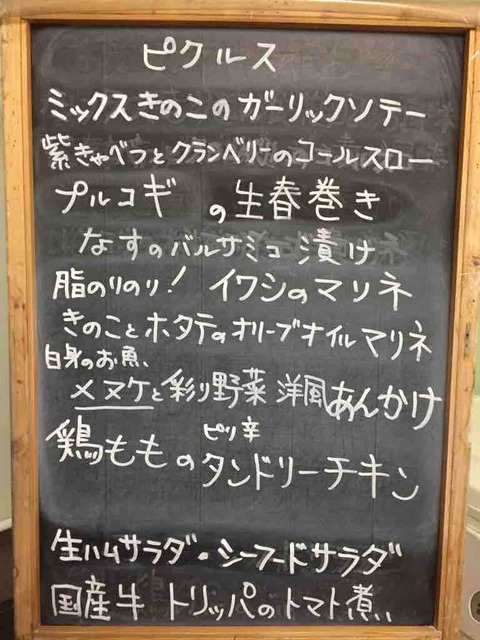 ピクルス
ミックスきのこのガーリックソテー
紫きゃべつとクランベリーのコールスロー
プルコギの生春巻き
なすのバルサミコ漬け
脂のりのり！イワシのマリネ
きのことホタテのオリーブオイルマリネ
白身のお魚、
メヌケと彩り野菜洋風あんかけ
ピリ辛
鶏もものタンドリーチキン
生ハムサラダ・シーフードサラダ
国産牛トリッパのトマト煮